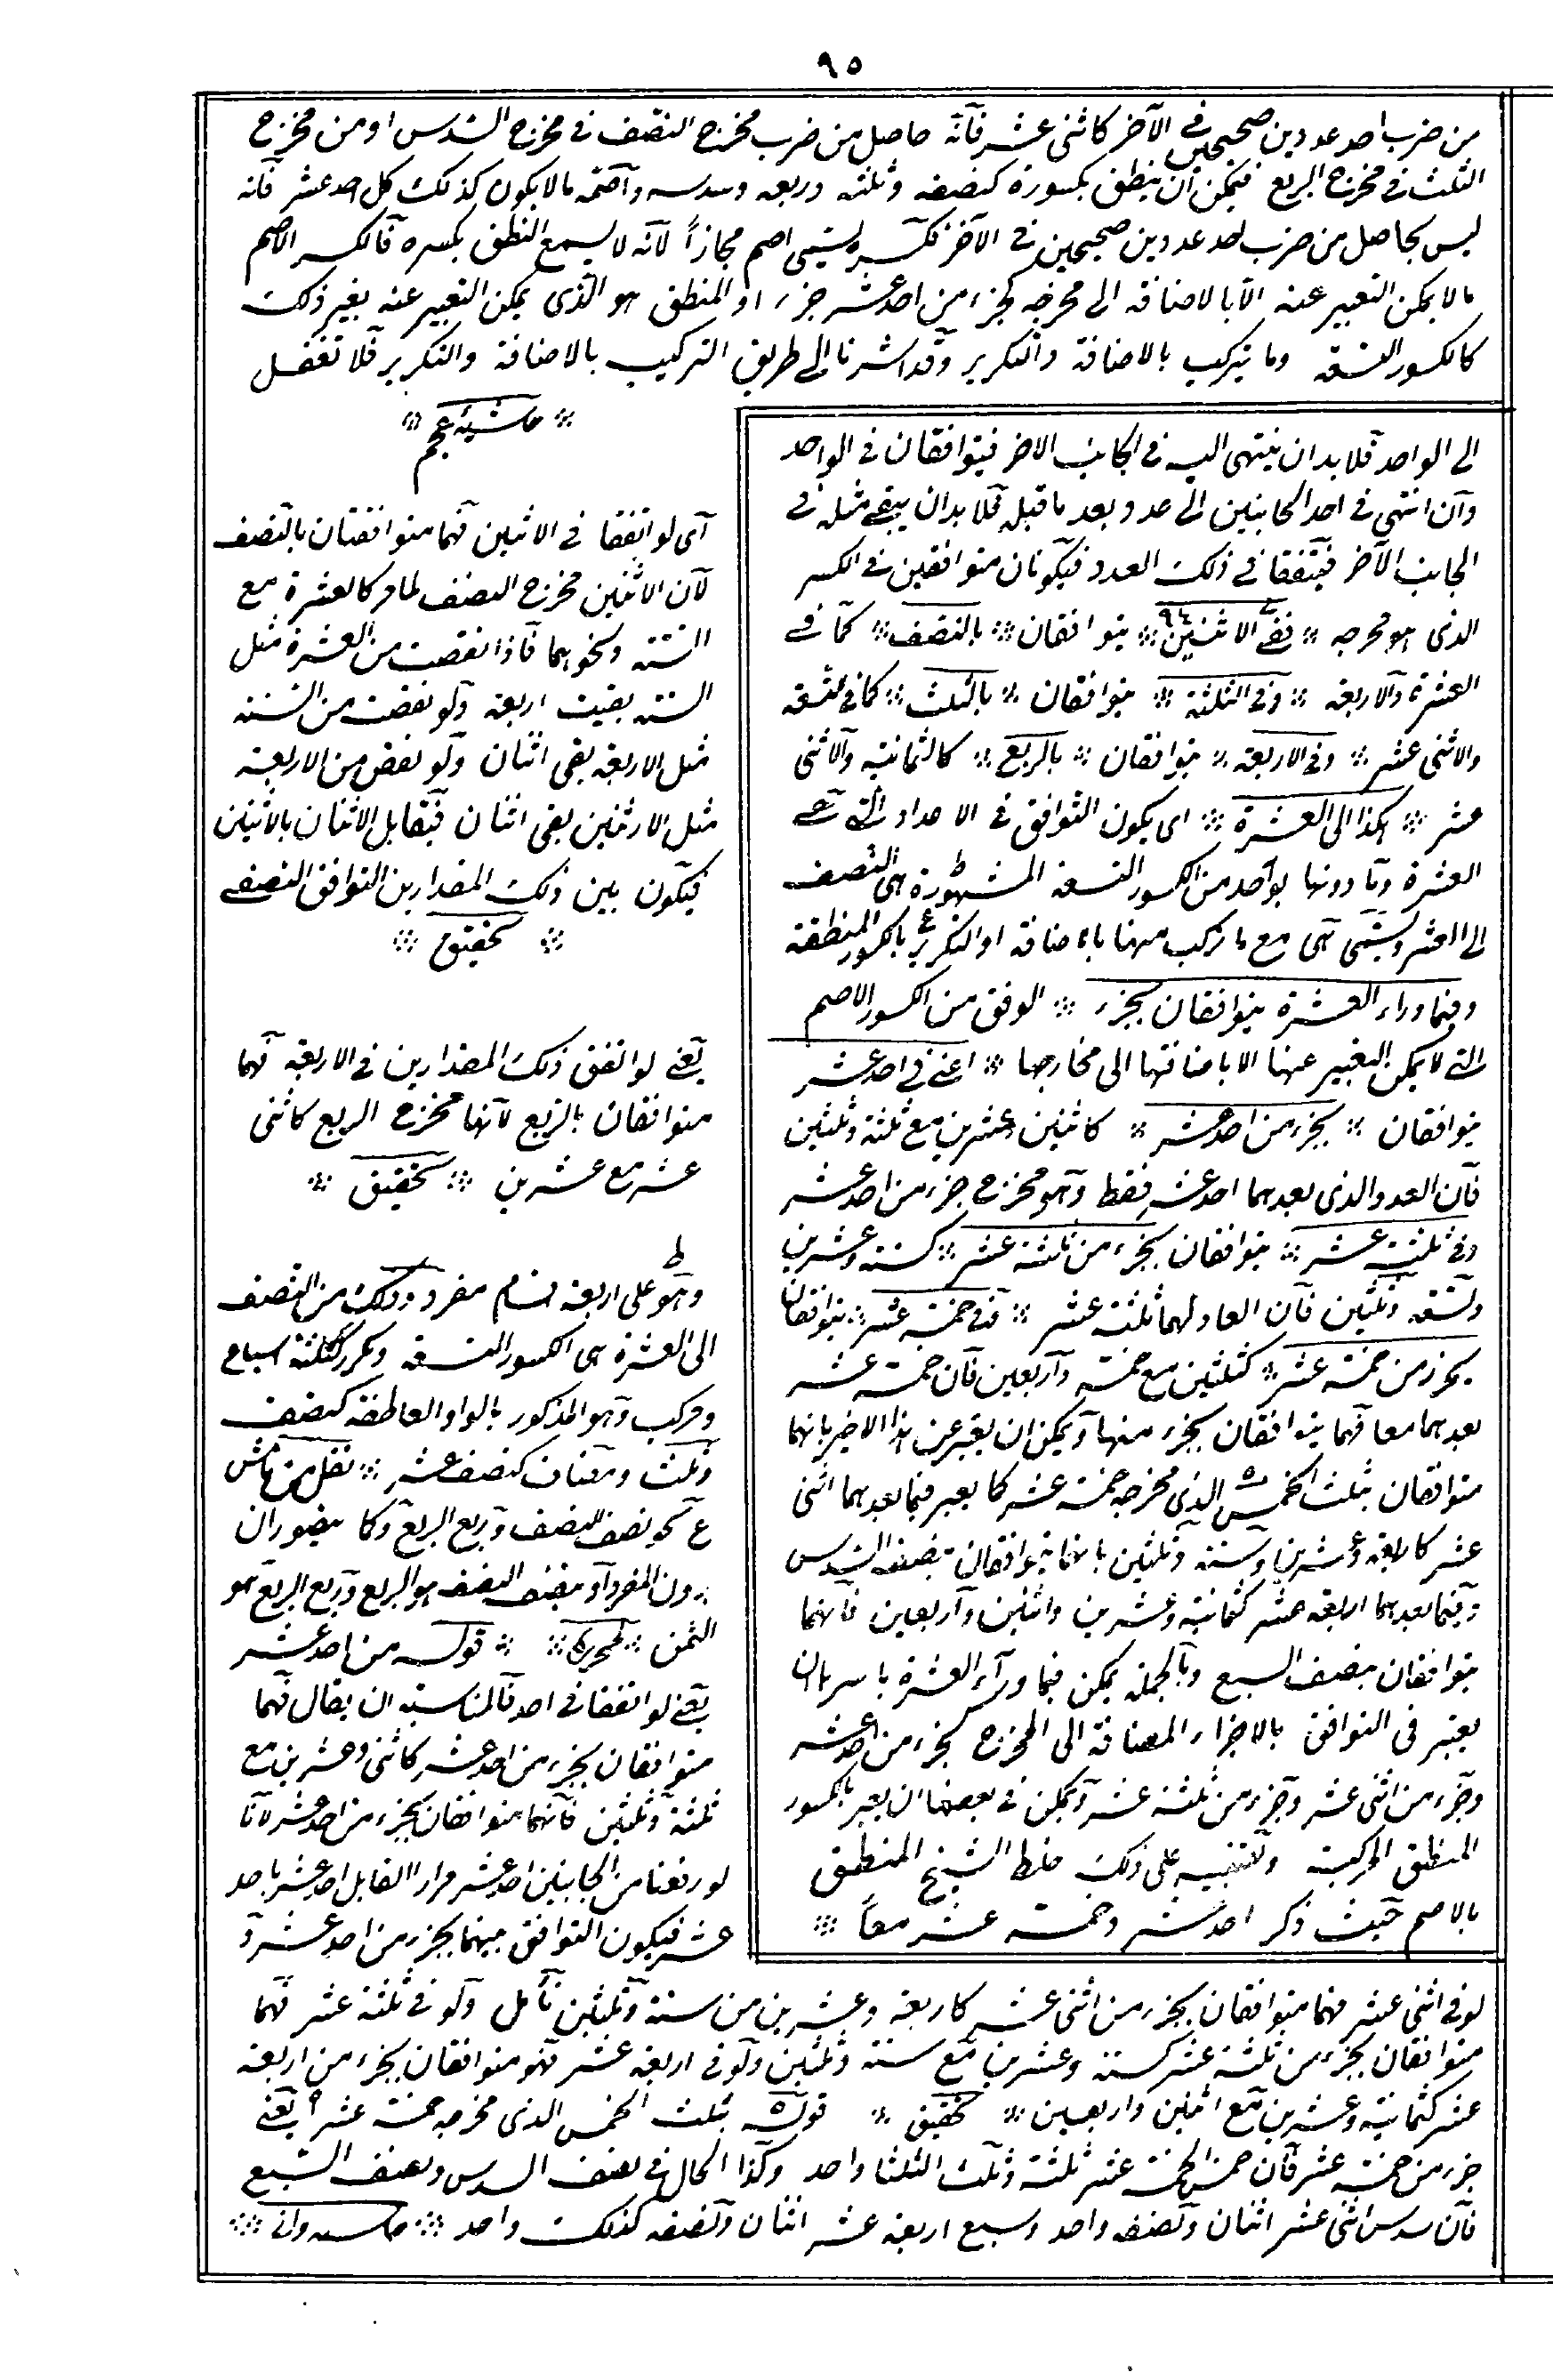 ٩٥
من ضرب احد عددين صحيحين فى الآخر كاثنى عشر فآنه حاصل من ضرب مخرج النصف فى مخرج السدس او من مخرج
الثلث فى مخرج الربع فيمكن ان ينطق بكسوره كنصفه وثلثه وربعه وسدسه وآصمّ ما لا يكون كذلك كل احد عشر فآنه
ليس بحاصل من ضرب احد عددين صحيحين فى الآخر فكسره يسمى اصم مجازاً لآنه لا يسمع النطق بكسره فآلكسر الاصم
ما لا يمكن التعبير عنه الآ بالاضافة الى مخرجه كجزء من احد عشر جزء او المنطق هو الذى يمكن التعبير عنه بغير ذلك
كالكسور التسعة وما يتركب بالاضافة والتكرير وقد اشرنا الى طريق التركيب بالاضافة والتكرير فلا تغفل
الى الواحد فلا بد ان ينتهى اليه فى الجانب الاخر فيتوافقان فى الواحد
وآن انتهى فى احد الجانبين الى عدد بعد ما قبله فلا بد ان يبقى مثله فى
الجانب الآخر فيتفقا فى ذلك العدد فيكونان متوافقين فى الكسر
الذى هو مخرجه ؞ ففى الاثنين ٩٤ ؞ يتوافقان ؞ بالنصف ؞ كما فى
العشرة والاربعة ؞ وفى الثلثة ؞ يتوافقان ؞ بالثلث ؞ كما فى تسعة
والاثنى عشر ؞ وفى الاربعة ؞ يتوافقان ؞ بالربع ؞ كالثمانية والاثنى
عشر ؞ هكذا الى العشرة ؞ اى يكون التوافق فى الاعداد التى هى
العشرة وما دونها بواحد من الكسور التسعة المشهورة هى النصف
الى العشر ويسمى هى مع ما تركب منها بالاضافة او التكرير بالكسور المنطقة
وفيما وراء العشرة يتوافقان بجزء ؞ الوفق من الكسور الاصم
التى لا يمكن التعبير عنها الا باضافتها الى مخارجها ؞ اعنى فى احد عشر
يتوافقان ؞ بجزء من احد عشر ؞ كاثنين وعشرين مع ثلثة وثلثين
فآن العدد الذى يعدهما احد عشر فقط وآهو مخرج جزء من احد عشر
وفى ثلثة عشر ؞ يتوافقان بجزء من ثلثة عشر ؞ كستة وعشرين
وتسعة وثلثين فآن العاد لهما ثلثة عشر ؞ وفى خمسة عشر ؞ يتوافقان
بجزء من خمسة عشر ؞ كثلثين مع خمسة وآربعين فآن خمسة عشر
يعدهما معا فهما يتوافقان بجزء منها ويمكن ان يعبر عن هذا الاخير بانهما
متوافقان بثلث الخمس الذى مخرجه خمسة عشر كما يعبر فيما يعدهما اثنى
عشر كاربعة وعشرين وستة وثلثين بانهما يتوافقان بنصف السدس
وفيما يعدهما اربعة عشر كثمانية وعشرين واثنين وآربعين فآنهما
يتوافقان بنصف السبع وبالجملة يمكن فيما ورآء العشرة باسرها ان
يعتبر فى التوافق بالاجزاء المضافة الى المخرج كجزء من احد عشر
وجزء من اثنى عشر وجزء من ثلثة عشر ويمكن فى بعضها ان يعبر بالكسور
المنطق المركبة وللتنبيه على ذلك خلط الشيخ المنطق
بالاصم حيث ذكر احد عشر وخمسة عشر معاً ؞
؞ حاشية عجم ؞
آى لو اتفقا فى الاثنين فهما متوافقتان بالنصف
لآن الاثنين مخرج النصف لما مر كالعشرة مع
الستة ونحوهما فآذا نقصت من العشرة مثل
الستة بقيت اربعة ولو نقصت من الستة
مثل الاربعة بقى اثنان ولو نقص من الاربعة
مثل الاثنين بقى اثنان فيقابل الاثنان بالاثنين
فيكون بين ذلك المقدارين التوافق النصفى
؞ تحقيق ؞
يعنى لو اتفق ذلك المقدارين فى الاربعة فهما
متوافقان بالربع لآنها مخرج الربع كاثنى
عشر مع عشرين ؞ تحقيق ؞
وهو على اربعة اقسام مفرد وذلك من النصف
الى العشرة هى الكسور التسعة ومكرر كثلثة اسباع
ومركب وآهو المذكور بالواو العاطفة كنصف
وثلث ومضاف كنصف عشر ؞ نقل من هامش
ع نحو نصف النصف وربع الربع وكا يتصوران
بدون المفرد او نصف النصف هو الربع وربع الربع هو
الثمن ؞ لمحرره ؞ ؞ قوله من احد عشر
يعنى لو اتفقا فى احد فآلمناسبة ان يقال فهما
متوافقان بجزء من احد عشر كاثنى وعشرين مع
ثلثة وثلثين فآنهما متوافقان بجزء من احد عشر لآنا
لو رفعنا من الجانبين احد عشر مرارا لقابل احد عشر باحد
عشر فيكون التوافق بينهما بجزء من احد عشر و
لو فى اثنى عشر فهما متوافقان بجزء من اثنى عشر كاربعة وعشرين من ستة وثلثين تآمل ولو فى ثلثة عشر فهما
متوافقان بجزء من ثلثة عشر كستة وعشرين مع ستة وثلثين ولو فى اربعة عشر فهو متوافقان بجزء من اربعة
عشر كثمانية وعشرين مع اثنين واربعين ؞ تحقيق ؞ قوله بثلث الخمس الذى مخرجه خمسة عشر ؟ يعنى
جزء من خمسة عشر فآن خمس الخمسة عشر ثلثة وثلث الثلثا واحد وكذا الحال فى نصف السدس ونصف السبع
فآن سدس اثنى عشر اثنان ونصفه واحد وسبع اربعة عشر اثنان ونصفه كذلك واحد ؞